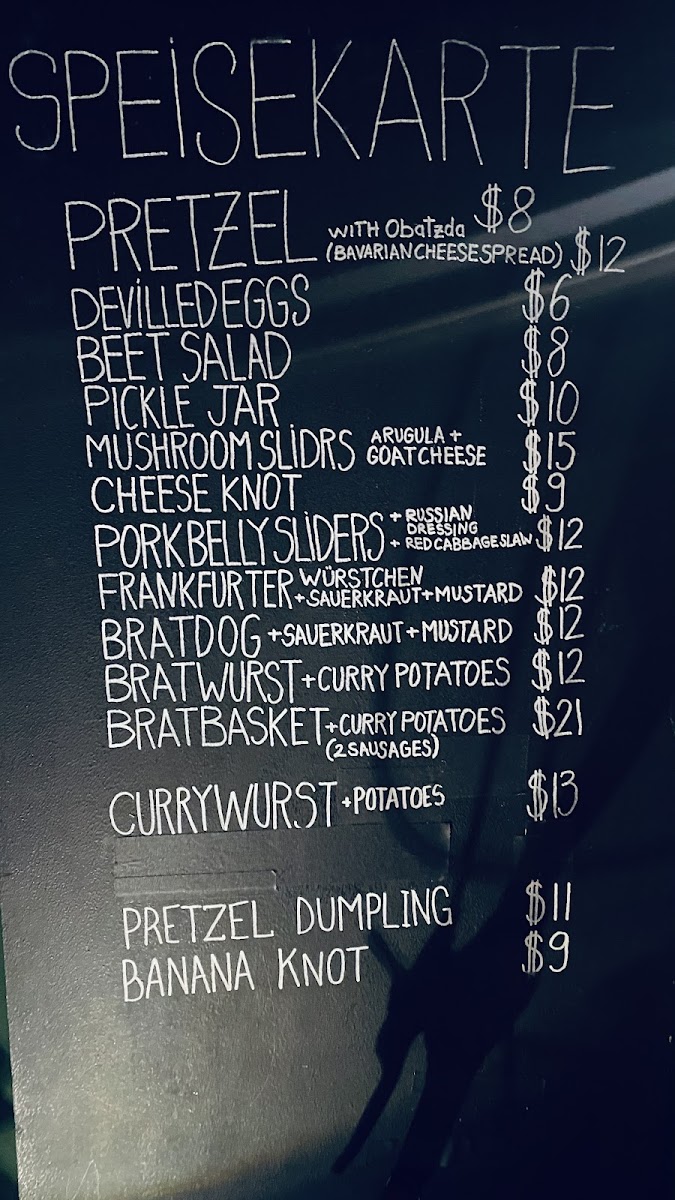 SPEISEKARTE
PRETZEL $8
WITH Obatzda
(BAVARIAN CHEESE SPREAD) $12
DEVILLED EGGS $6
BEET SALAD $8
PICKLE JAR $10
MUSHROOM SLIDRS ARUGULA + GOAT CHEESE $15
CHEESE KNOT $9
PORK BELLY SLIDERS + RUSSIAN DRESSING + RED CABBAGE SLAW $12
FRANKFURTER WÜRSTCHEN + SAUERKRAUT + MUSTARD $12
BRATDOG + SAUERKRAUT + MUSTARD $12
BRATWURST + CURRY POTATOES $12
BRATBASKET + CURRY POTATOES $21
(2 SAUSAGES)
CURRYWURST + POTATOES $13
PRETZEL DUMPLING $11
BANANA KNOT $9